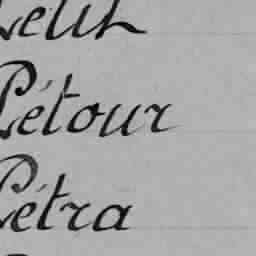 Petit
Pétour
Pétra